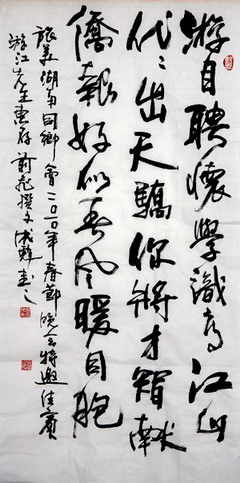 游自聘懷學識高江山
代〻出天驕你將才智献
僑報好似春風暖同胞
旅美湖南同鄉會二〇一〇年春節晚會特邀佳賓
游江先生惠存 撰文 書之